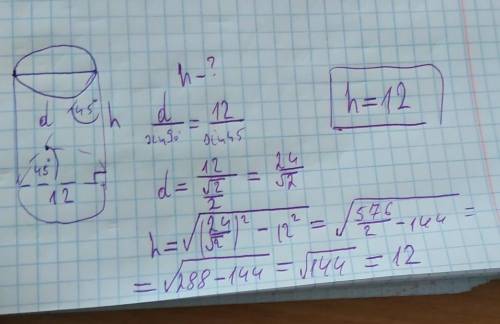 h - ?
d 45° h
45°
12
d/sin90 = 12/sin45
d = 12/(√2/2) = 24/√2
h = √((24/√2)² - 12²) = √(576/2 - 144) =
= √(288 - 144) = √144 = 12
h = 12